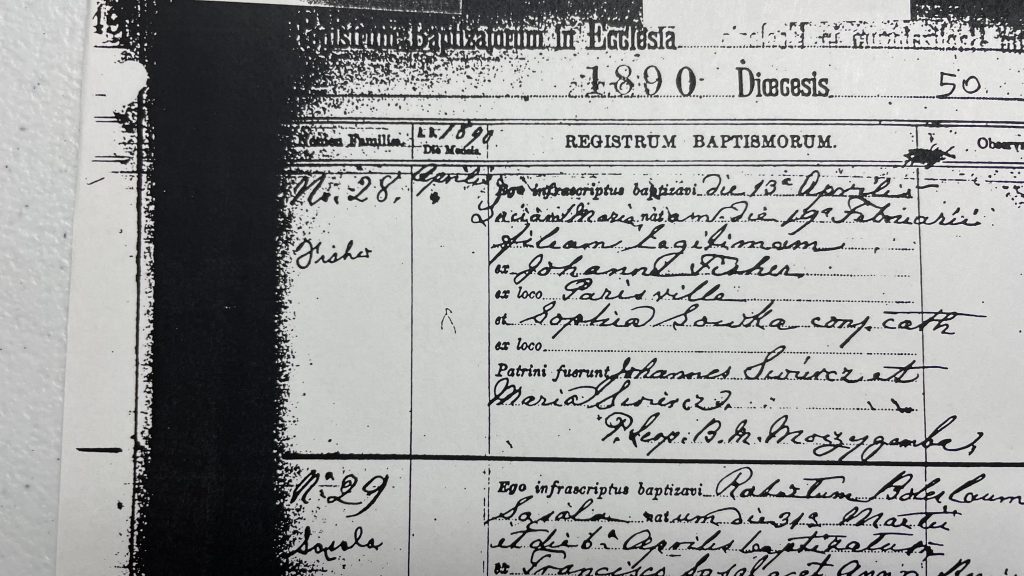 Registrum Baptizatorum in Ecclesiâ
1890 Diœcesis 50
Nomen Familiæ.
A.D. 1890
Die Mensis.
REGISTRUM BAPTISMORUM.
Observ
No. 28. Aprilis
Fisher
Ego infrascriptus baptizavi die 13ª Aprilis
Maria natam die 19ª Februarii
filiam legitimam
ex Johanne Fisher
ex loco Parisville
et Sophia Sowka conj. cath
ex loco
Patrini fuerunt Johannes et
Maria
P. Leop. B. M. Moczygemba,
No. 29
Sosala
Ego infrascriptus baptizavi Robertum Boleslaum
Sosala natum die 31ª Martii
et die 6ª Aprilis baptizatum
ex Francisco et Anna